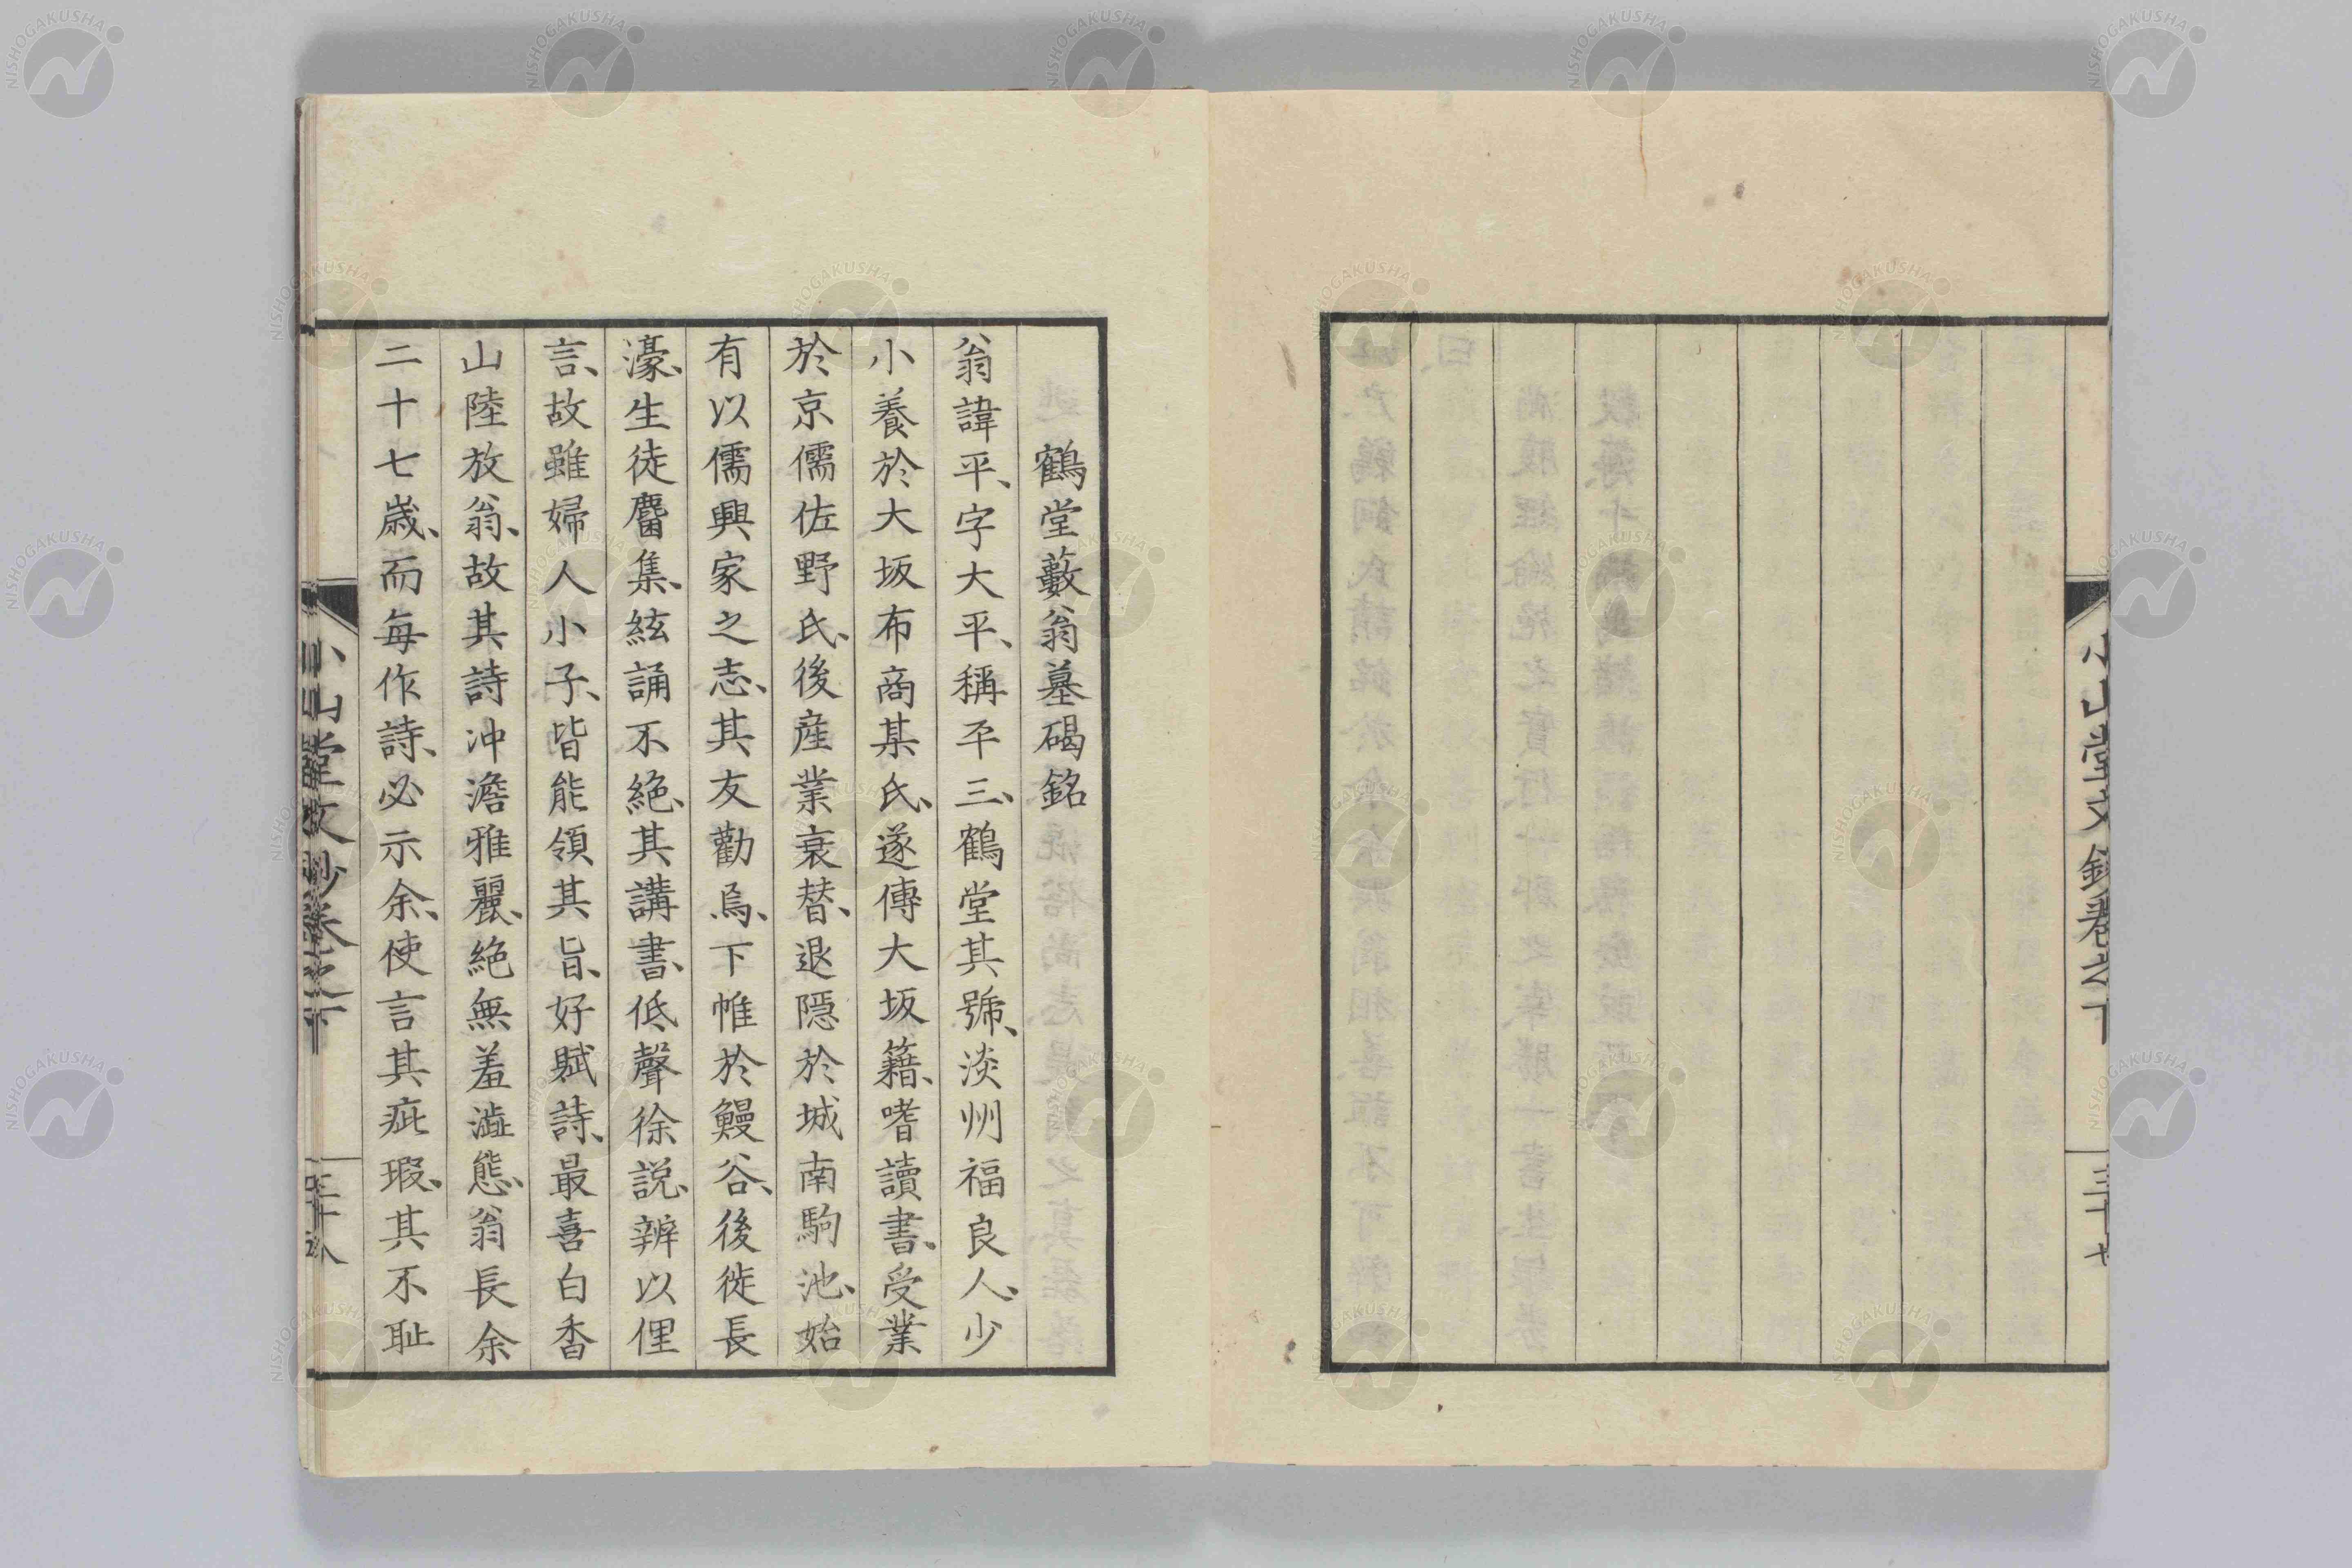 小山堂文鈔卷之下
三十七
鶴堂藪翁墓碣銘
翁諱平、字大平、稱平三、鶴堂其號、淡州福良人、少
小養於大坂布商某氏、遂傳大坂籍、嗜讀書、受業
於京儒佐野氏、後産業衰替、退隱於城南駒池、始
有以儒興家之志、其友勸焉、下帷於鰻谷、後徙長
濠、生徒麕集、絃誦不絶、其講書、低聲徐説、辨以俚
言、故雖婦人小子、皆能領其旨、好賦詩、最喜白香
山陸放翁、故其詩冲澹雅麗、絶無羞澁態、翁長余
二十七歳、而每作詩、必示余、使言其疵瑕、其不耻
小山堂文鈔卷之下
NISHOGAKUSHA